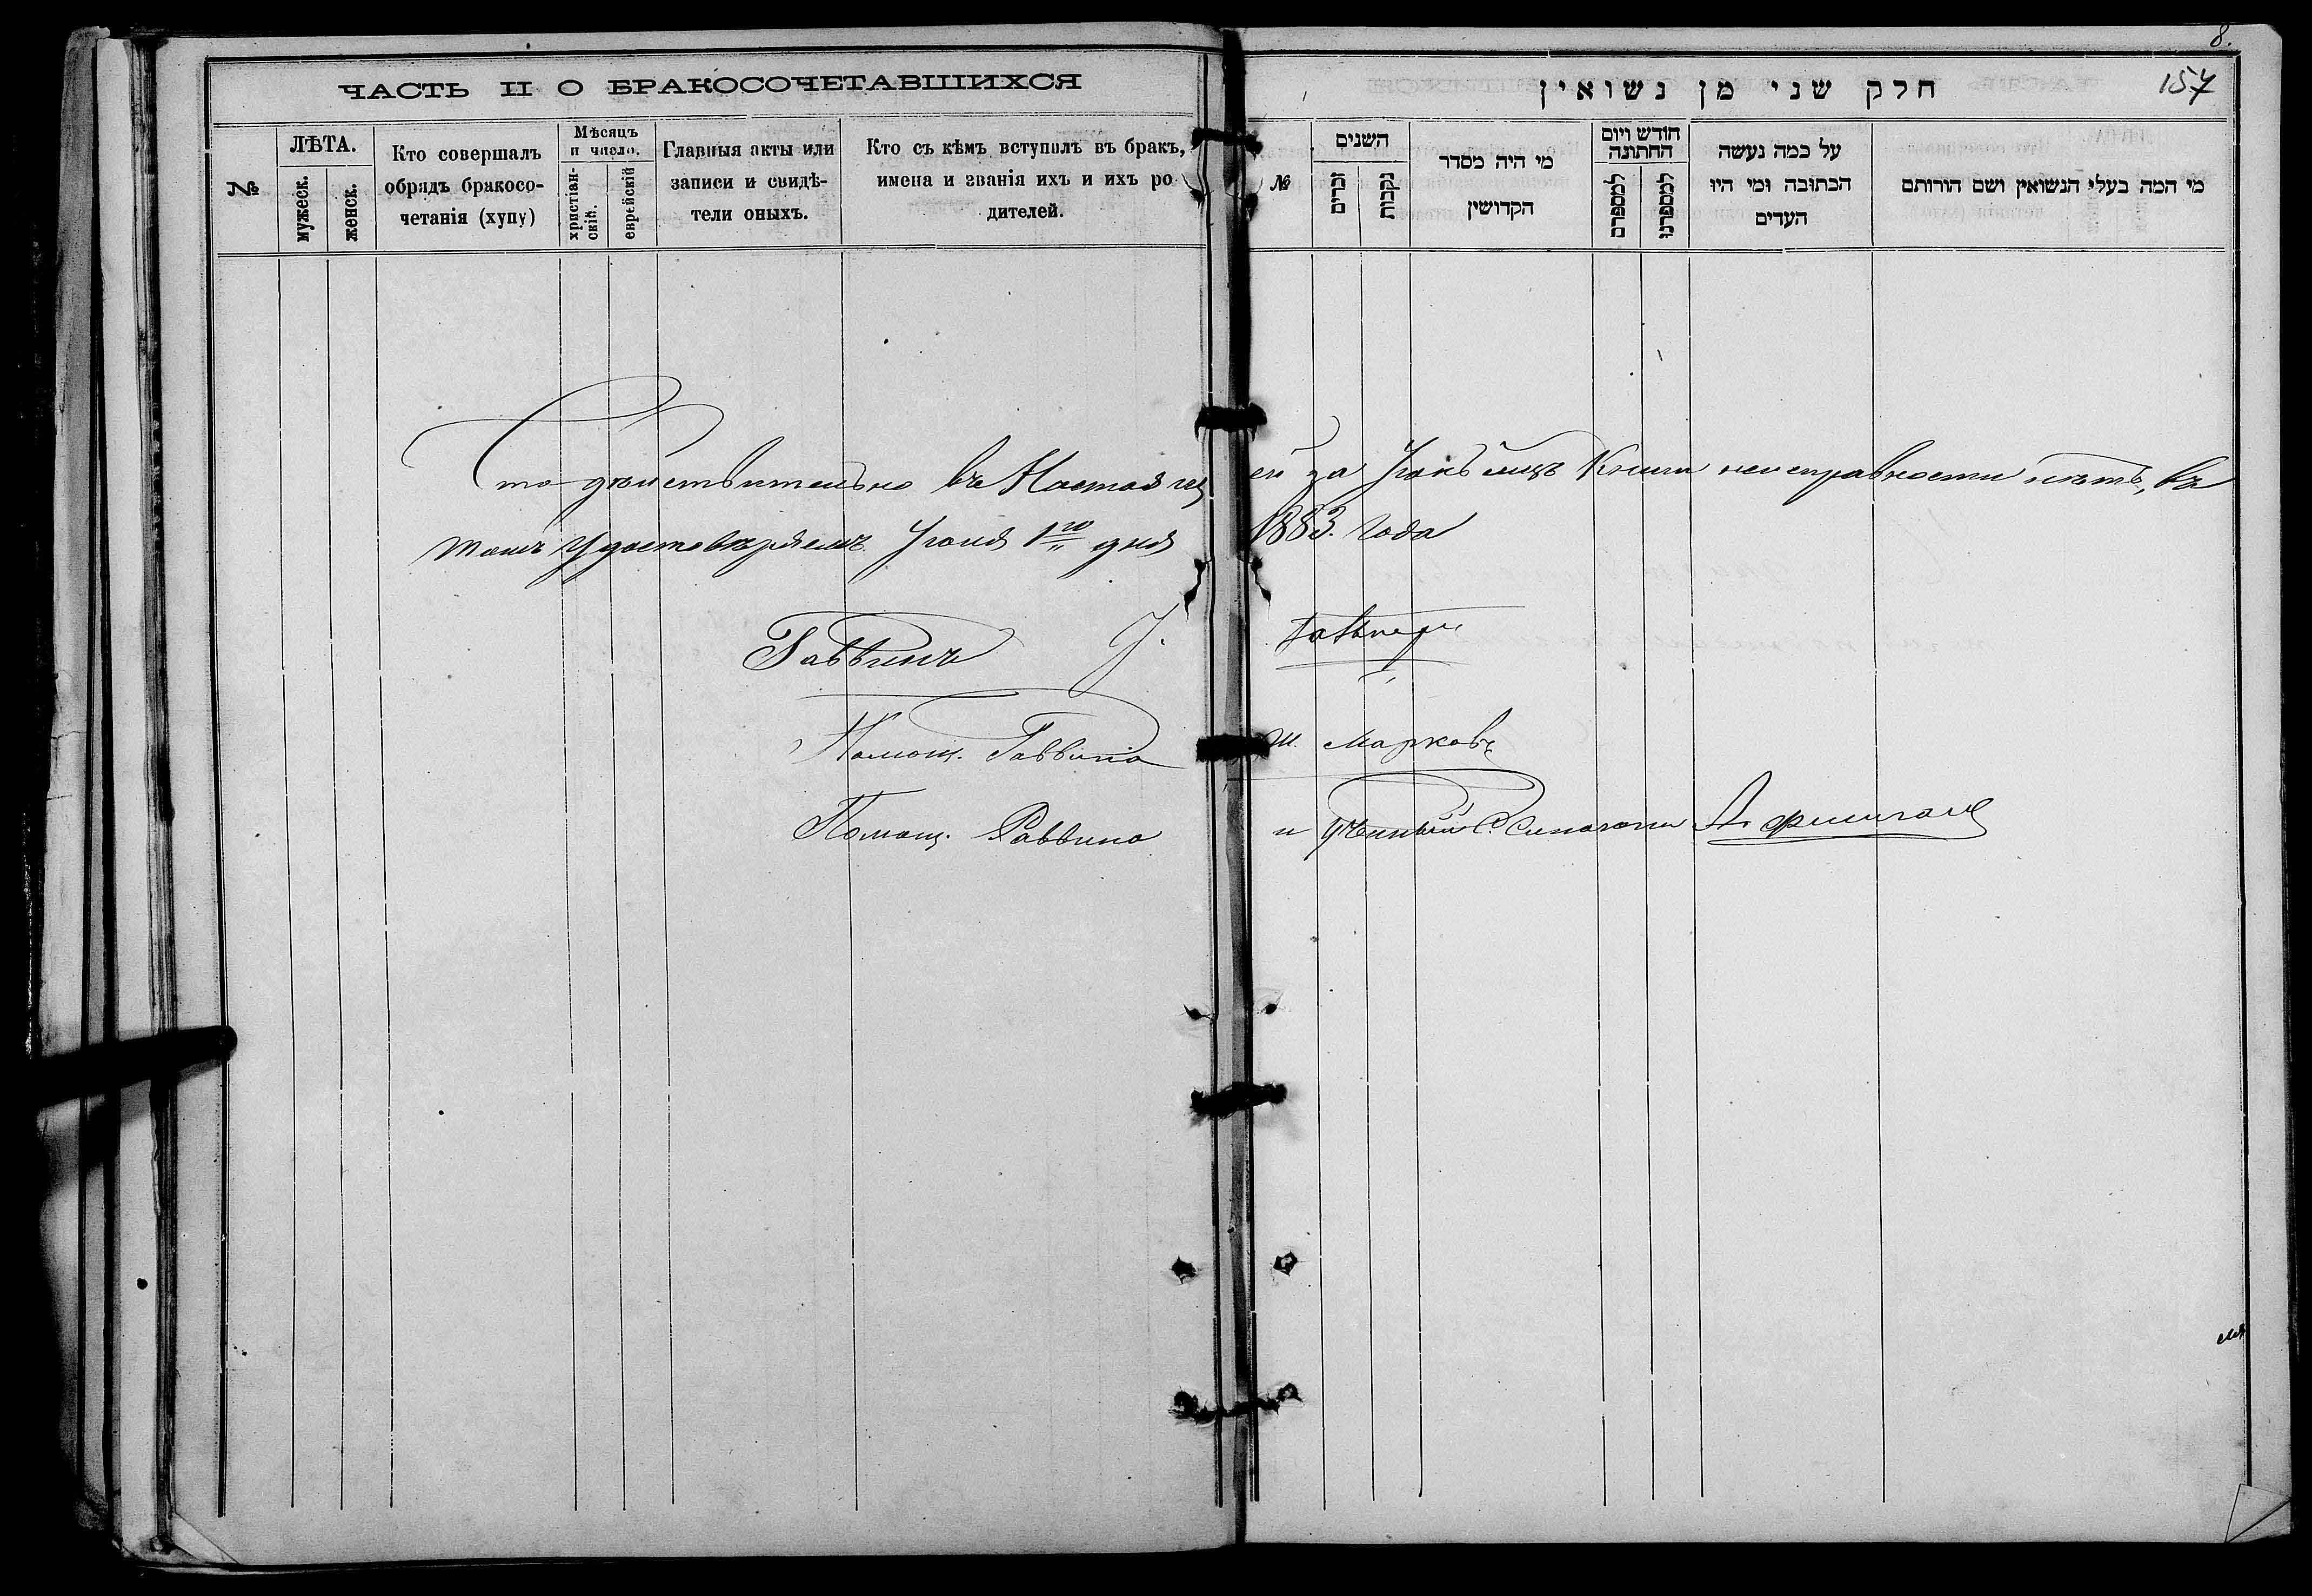 8.
157
ЧАСТЬ II О БРАКОСОЧЕТАВШИХСЯ
№
ЛѢТА.
мужеск.
женск.
Кто совершалъ
обрядъ бракосо-
четанія (хупу)
Мѣсяцъ
и число.
христіан-
скій.
еврейскій
Главныя акты или
записи и свидѣ-
тели оныхъ.
Кто съ кѣмъ вступилъ въ бракъ,
имена и званія ихъ и ихъ ро
дителей.
חלק שני מן נשואין
№
השנים
זכרים
נקבות
מי היה מסדר
הקדושין
חודש ויום
החתונה
למספרם
למספרנו
על כמה נעשה
הכתובה ומי היו
העדים
מי המה בעלי הנשואין ושם הורותם
Что дѣйствительно въ Настоящей за Іюнь мцъ Книги неисправности нѣтъ, въ
томъ удостовѣряемъ Іюля 1го дня 1883. Года
Раввинъ
Помощ. Раввина Ш. Марковъ
Помощ. Раввина и Ученный С. Синагоги А.